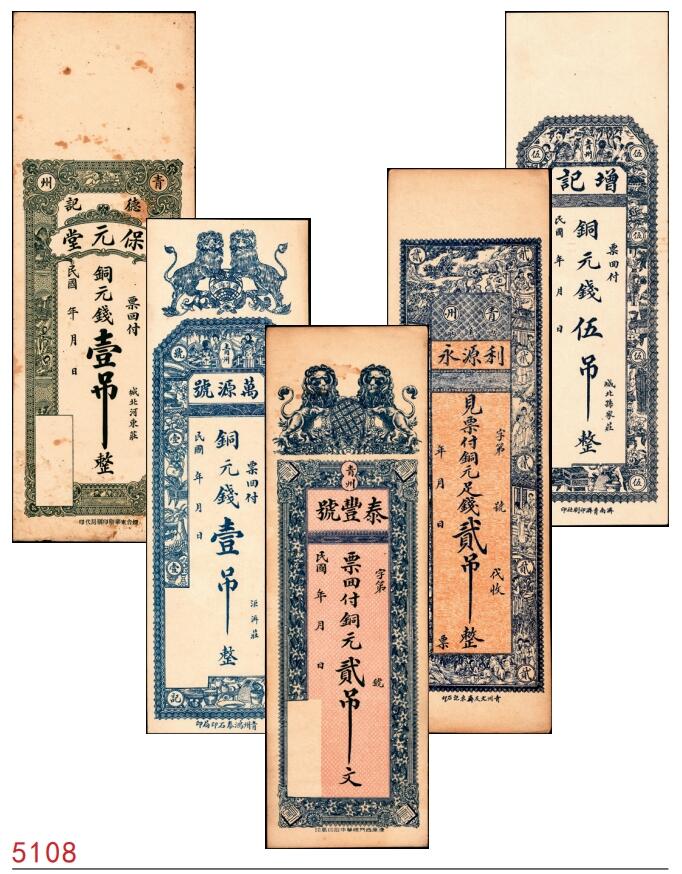 青 州
德記
保元堂
票回付
銅元錢壹吊整
民國 年 月 日
城北河東莊
號 青州
萬源號
票回付
銅元錢壹吊整
民國 年 月 日
壹
壹
記
青州
泰豐號
字第 號
票回付銅元貳吊文
民國 年 月 日
貳 貳
青 州
利源永
字第 號
見票付銅元足錢貳吊整
年 月 日
代收
票
貳
貳
貳
伍 青州 伍
增記
票回付
銅元錢伍吊整
民國 年 月 日
城北孫家莊
伍
伍
伍
濟南青濟印刷社印
5108